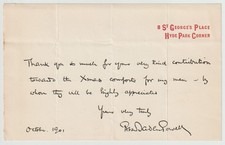 8 St George's Place
Hyde Park Corner
Thank you so much for your very kind contribution
towards the Xmas comforts for my men – by
whom they will be highly appreciated
Yours very truly
Octr. 1901 R.S.S. Baden-Powell